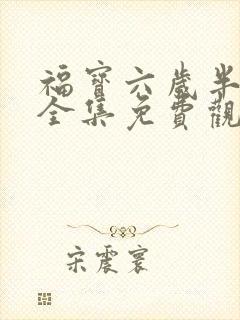 福寶六歲半
全集免費觀
宋震寰